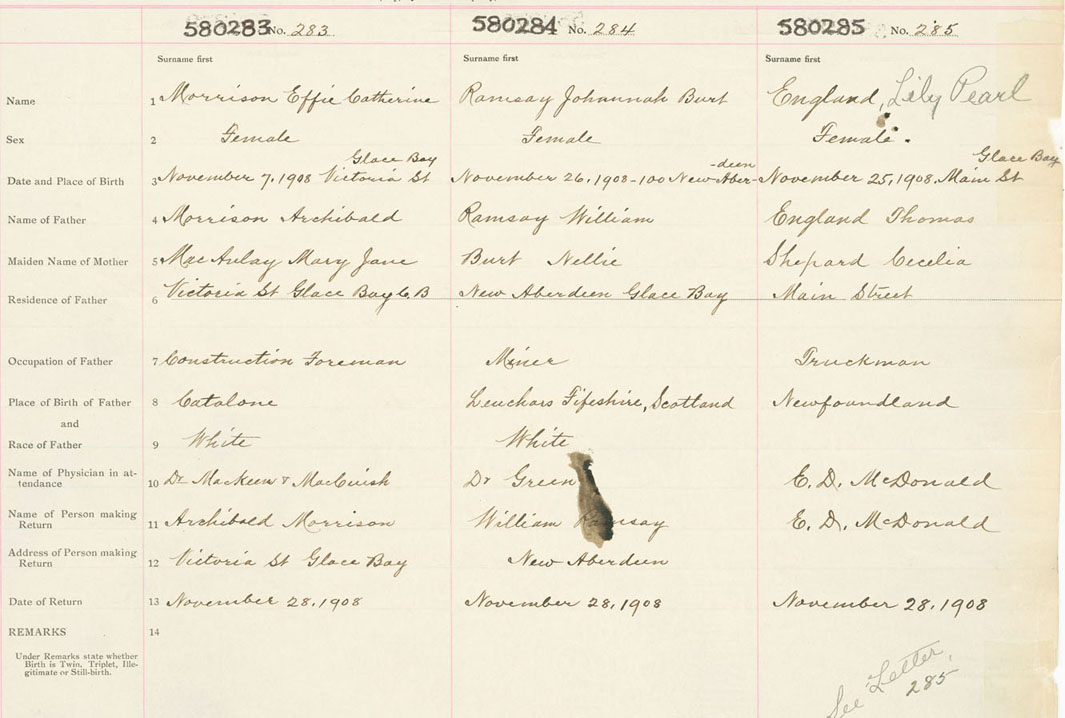 580283 No. 283 580284 No. 284 580285 No. 285
Surname first Surname first Surname first
Name 1 Morrison Effie Catherine Ramsay Johannah Burt England, Lily Pearl
Sex 2 Female Female Female.
Glace Bay -deen Glace Bay
Date and Place of Birth 3 November 7, 1908 Victoria St November 26, 1908-100 New Aber- November 25, 1908. Main St
Name of Father 4 Morrison Archibald Ramsay William England Thomas
Maiden Name of Mother 5 MacAulay Mary Jane Burt Nellie Shepard Cecelia
Residence of Father 6 Victoria St Glace Bay C. B New Aberdeen Glace Bay Main Street
Occupation of Father 7 Construction Foreman Miner Truckman
Place of Birth of Father 8 Catalone Leuchars Fifeshire, Scotland Newfoundland
and
Race of Father 9 White White
Name of Physician in at-
tendance 10 Dr MacKeen & MacCuish Dr Green E. D. McDonald
Name of Person making
Return 11 Archibald Morrison William Ramsay E. D. McDonald
Address of Person making
Return 12 Victoria St Glace Bay New Aberdeen
Date of Return 13 November 28, 1908 November 28, 1908 November 28, 1908
REMARKS 14
Under Remarks state whether
Birth is Twin, Triplet, Ille-
gitimate or Still-birth.
See Letter,
285